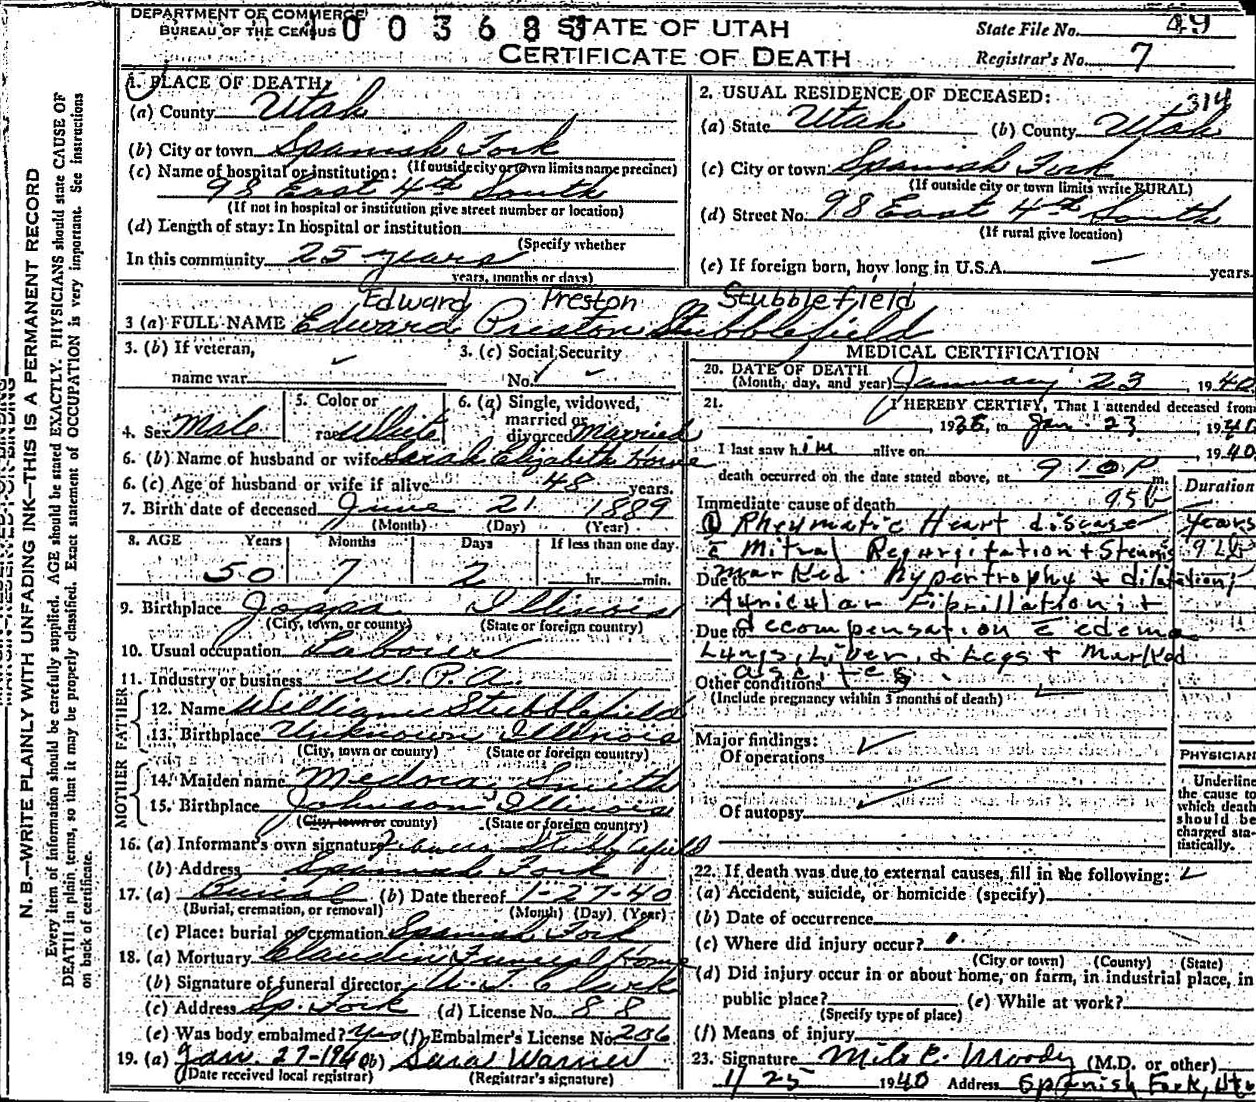 DEPARTMENT OF COMMERCE
BUREAU OF THE CENSUS
STATE OF UTAH
CERTIFICATE OF DEATH
State File No. 49
Registrar's No. 7
N. B.—WRITE PLAINLY WITH UNFADING INK—THIS IS A PERMANENT RECORD
Every item of information should be carefully supplied. AGE should be stated EXACTLY. PHYSICIANS should state CAUSE OF
DEATH in plain terms, so that it may be properly classified. Exact statement of OCCUPATION is very important. See instructions
on back of certificate.
1. PLACE OF DEATH:
(a) County Utah
(b) City or town Spanish Fork
(If outside city or town limits name precinct)
(c) Name of hospital or institution:
98 East 4th South
(If not in hospital or institution give street number or location)
(d) Length of stay: In hospital or institution
(Specify whether
In this community 25 years
years, months or days)
2. USUAL RESIDENCE OF DECEASED:
314
(a) State Utah (b) County Utah
(c) City or town Spanish Fork
(If outside city or town limits write RURAL)
(d) Street No. 98 East 4th South
(If rural give location)
(e) If foreign born, how long in U.S.A. — years.
Edward Preston Stubblefield
3 (a) FULL NAME Edward Preston Stubblefield
3. (b) If veteran,
name war
3. (c) Social Security
No.
4. Sex Male
5. Color or
race White
6. (a) Single, widowed,
married or
divorced Married
6. (b) Name of husband or wife Sarah Elizabeth Howe
6. (c) Age of husband or wife if alive 48 years.
7. Birth date of deceased June 21 1889
(Month) (Day) (Year)
8. AGE Years Months Days If less than one day
50 7 2 hr. min.
9. Birthplace Joppa Illinois
(City, town, or county) (State or foreign country)
10. Usual occupation Laborer
11. Industry or business W. P. A.
FATHER
12. Name William Stubblefield
13. Birthplace Unknown Illinois
(City, town or county) (State or foreign country)
MOTHER
14. Maiden name Medora Smith
15. Birthplace Johnson Illinois
(City, town or county) (State or foreign country)
16. (a) Informant's own signature Stubblefield
(b) Address Spanish Fork
17. (a) Burial (b) Date thereof 1-27-40
(Burial, cremation, or removal) (Month) (Day) (Year)
(c) Place: burial or cremation Spanish Fork
18. (a) Mortuary Claudin Funeral Home
(b) Signature of funeral director A. T. Clark
(c) Address Sp. Fork (d) License No. 88
(e) Was body embalmed? Yes (f) Embalmer's License No. 206
19. (a) Jan. 27-1940 (b) Sara Warner
(Date received local registrar) (Registrar's signature)
MEDICAL CERTIFICATION
20. DATE OF DEATH
(Month, day, and year) January 23, 1940
21. I HEREBY CERTIFY, That I attended deceased from
, 1938, to Jan 23, 1940
I last saw him alive on , 1940
death occurred on the date stated above, at 910 P m.
Immediate cause of death 95b
Duration
① Rheumatic Heart disease years
c̄ Mitral Regurgitation + Stenosis
Due to marked hypertrophy + dilatation;
Auricular Fibrillation; +
Due to decompensation c̄ edema
Lungs, Liver, & Legs + Marked
ascites.
Other conditions
(Include pregnancy within 3 months of death)
Major findings:
Of operations
Of autopsy
PHYSICIAN
Underline
the cause to
which death
should be
charged sta-
tistically.
22. If death was due to external causes, fill in the following:
(a) Accident, suicide, or homicide (specify)
(b) Date of occurrence
(c) Where did injury occur?
(City or town) (County) (State)
(d) Did injury occur in or about home, on farm, in industrial place, in
public place? (e) While at work?
(Specify type of place)
(f) Means of injury
23. Signature Milo C. Moody (M.D. or other)
1/25 1940 Address Spanish Fork, Utah